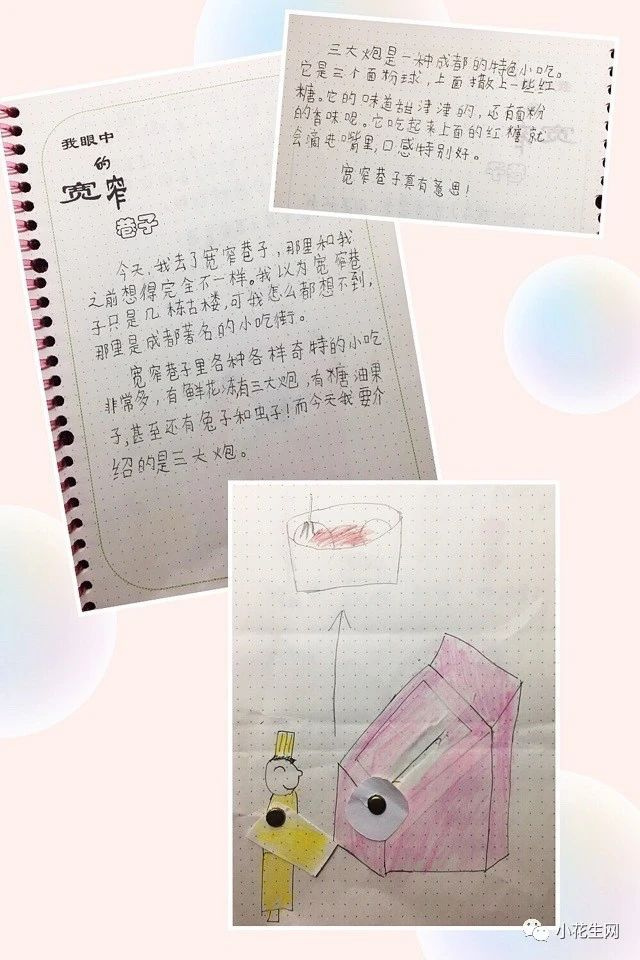 我眼中
的
宽窄
巷子
今天,我去了宽窄巷子,那里和我
之前想得完全不一样。我以为宽窄巷
子只是几栋古楼,可我怎么都想不到,
那里是成都著名的小吃街。
宽窄巷子里各种各样奇特的小吃
非常多,有鲜花冻有三大炮,有糖油果
子,甚至还有兔子和虫子!而今天我要介
绍的是三大炮。
三大炮是一种成都的特色小吃。
它是三个面粉球,上面撒上一些红
糖。它的味道甜津津的,还有面粉
的香味呢。它吃起来上面的红糖就
会滴进嘴里,口感特别好。
宽窄巷子真有意思!
小花生网